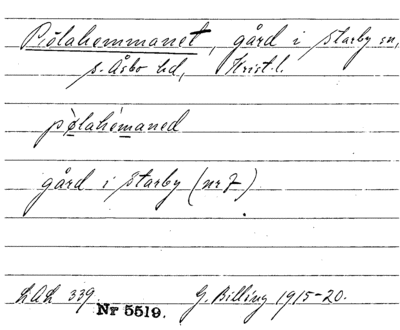 Pölahemmanet, gård i Starby sn,
S. Åsbo hd, Krist. l.
pø̀lahémaned
gård i Starby (nr 7)
LAL 339. G. Billing 1915-20.
Nr 5519.